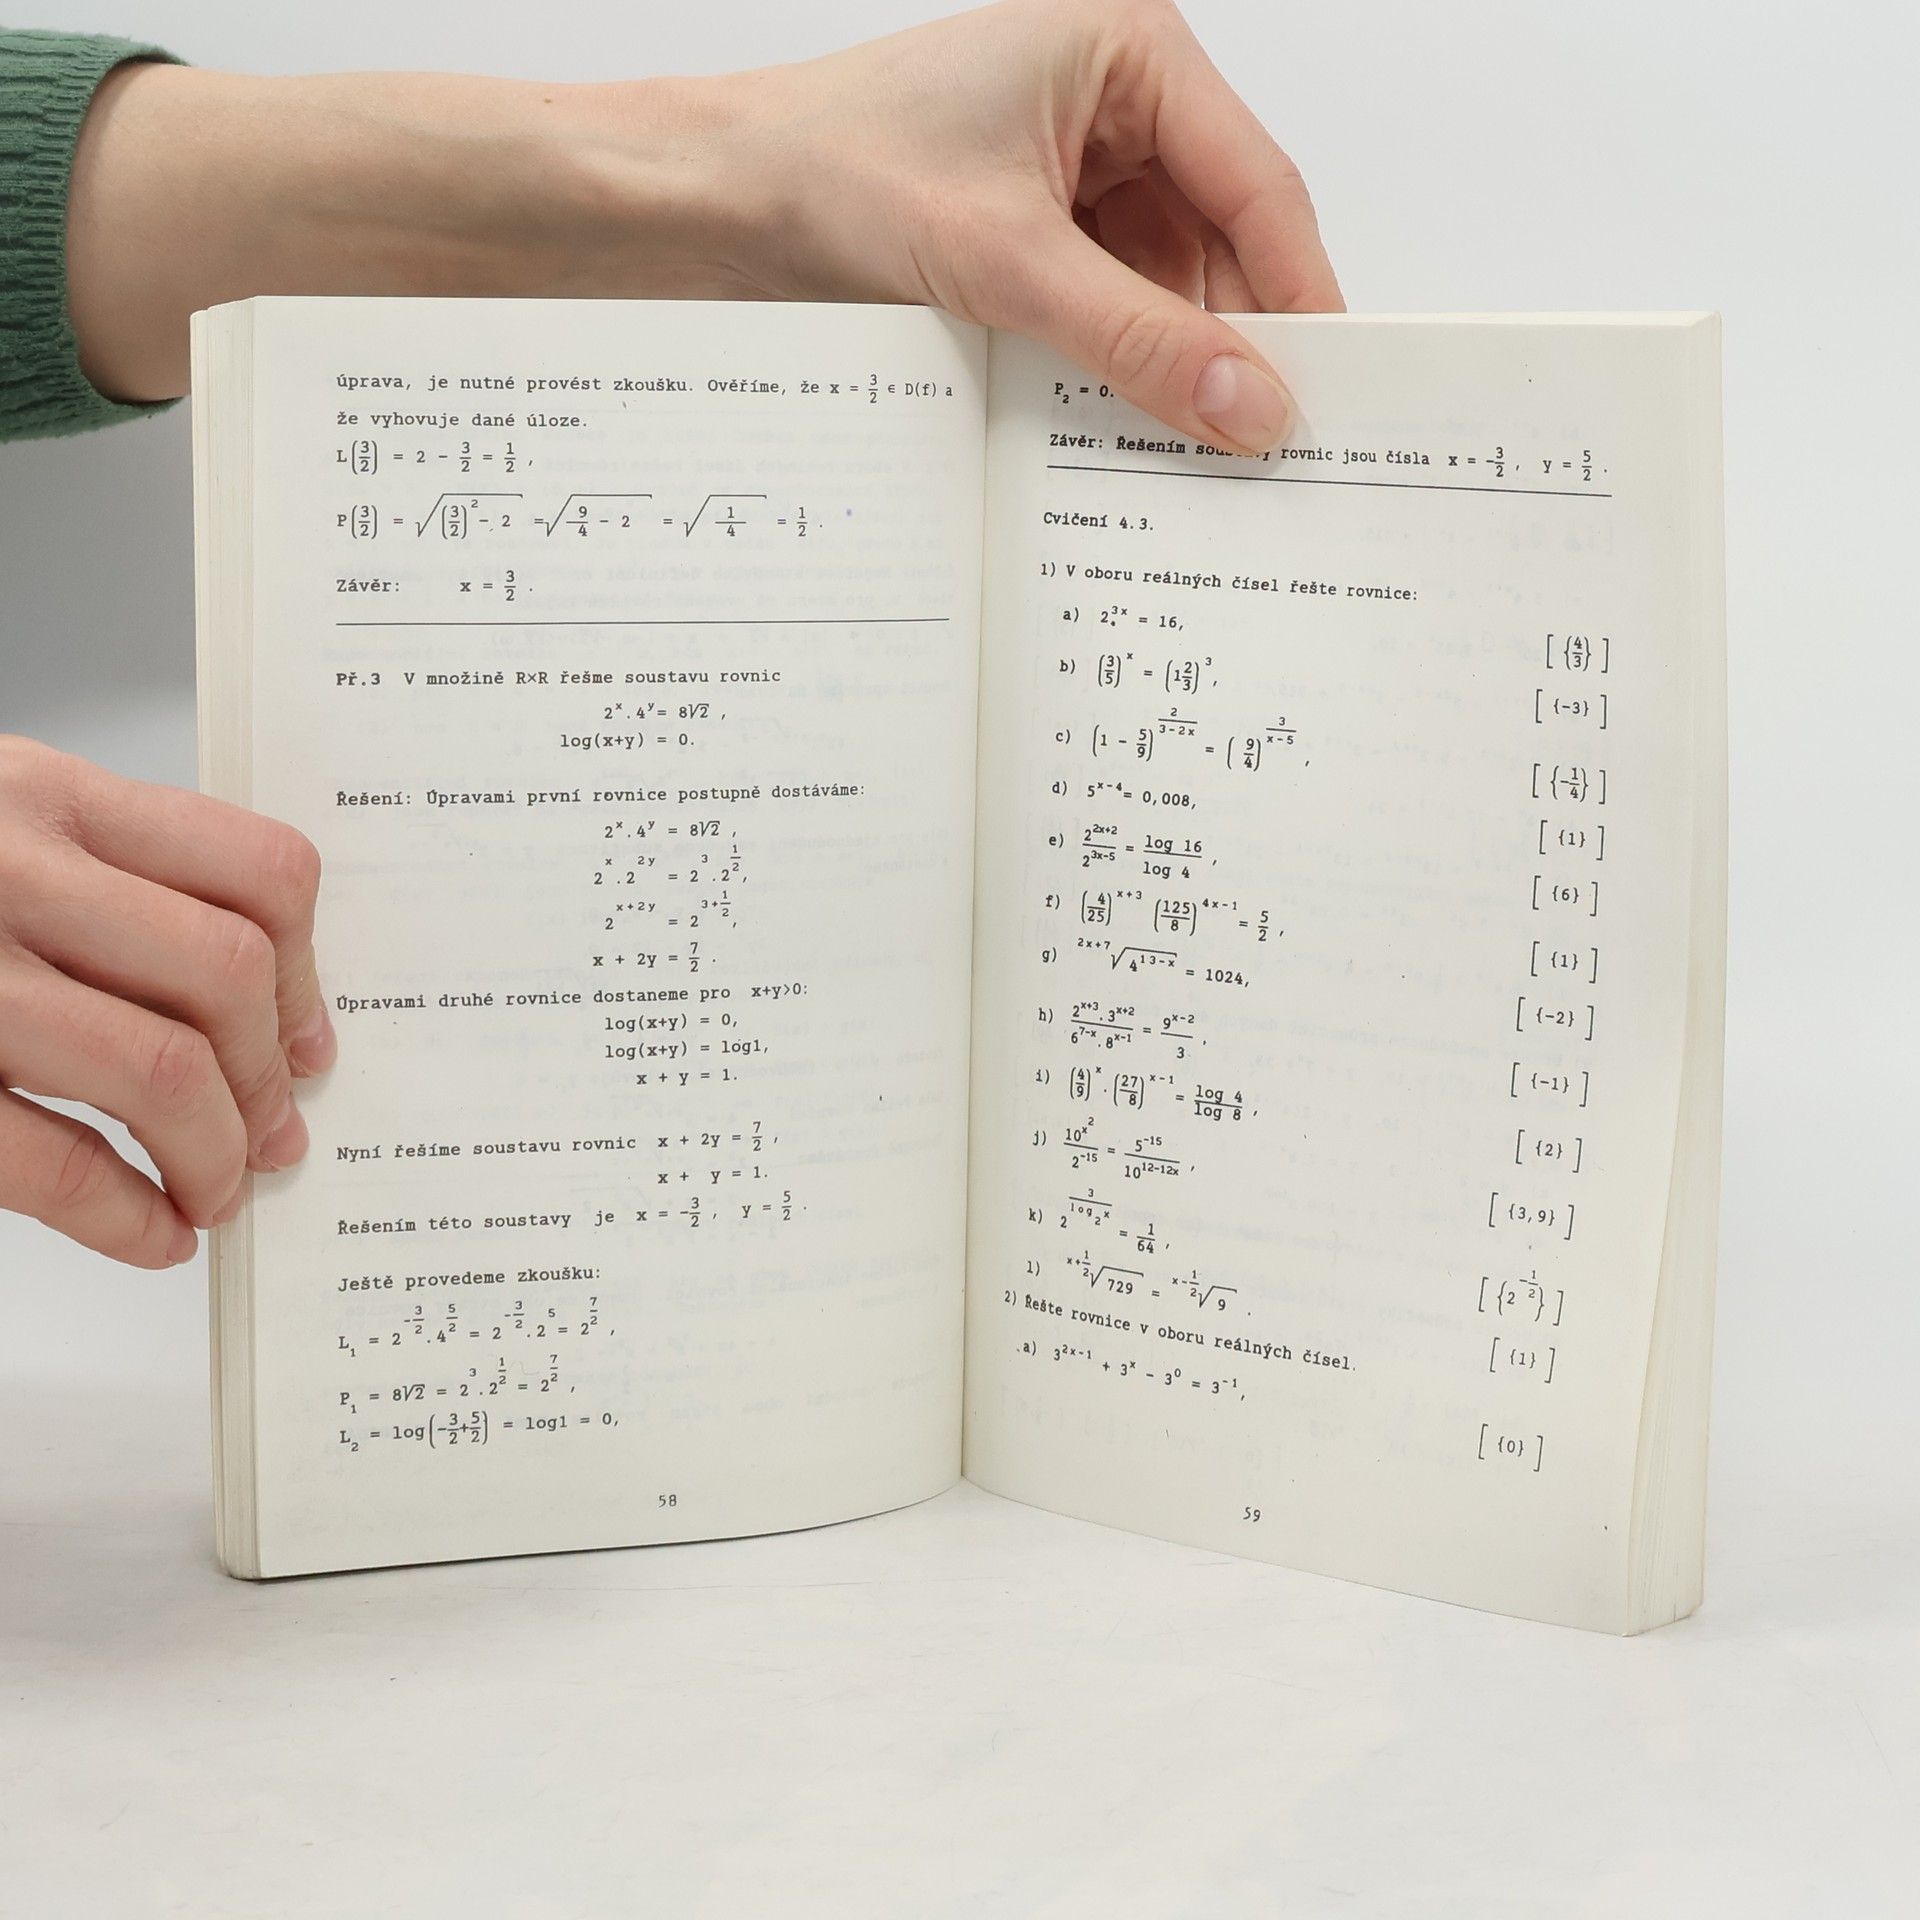 úprava, je nutné provést zkoušku. Ověříme, že x = 3/2 ∈ D(f) a
že vyhovuje dané úloze.
L(3/2) = 2 - 3/2 = 1/2 ,
P(3/2) = √((3/2)² - 2) = √(9/4 - 2) = √(1/4) = 1/2 .
Závěr: x = 3/2 .
Př.3 V množině R×R řešme soustavu rovnic
2^x . 4^y = 8√2 ,
log(x+y) = 0.
Řešení: Úpravami první rovnice postupně dostáváme:
2^x . 4^y = 8√2 ,
2^x . 2^(2y) = 2^3 . 2^(1/2),
2^(x+2y) = 2^(3+1/2),
x + 2y = 7/2 .
Úpravami druhé rovnice dostaneme pro x+y>0:
log(x+y) = 0,
log(x+y) = log1,
x + y = 1.
Nyní řešíme soustavu rovnic x + 2y = 7/2 ,
x + y = 1.
Řešením této soustavy je x = -3/2 , y = 5/2 .
Ještě provedeme zkoušku:
L₁ = 2^(-3/2) . 4^(5/2) = 2^(-3/2) . 2^5 = 2^(7/2) ,
P₁ = 8√2 = 2^3 . 2^(1/2) = 2^(7/2) ,
L₂ = log(-3/2+5/2) = log1 = 0,
58
P₂ = 0.
Závěr: Řešením soustavy rovnic jsou čísla x = -3/2 , y = 5/2 .
Cvičení 4.3.
1) V oboru reálných čísel řešte rovnice:
a) 2^(3x) = 16, [ {4/3} ]
b) (3/5)^x = (1 2/3)^3 , [ {-3} ]
c) (1 - 5/9)^(2/(3-2x)) = (9/4)^(3/(x-5)) , [ {-1/4} ]
d) 5^(x-4) = 0,008, [ {1} ]
e) 2^(2x+2)/2^(3x-5) = log 16/log 4 , [ {6} ]
f) (4/25)^(x+3) (125/8)^(4x-1) = 5/2 , [ {1} ]
g) ^(2x+7)√(4^(13-x)) = 1024, [ {-2} ]
h) (2^(x+3) . 3^(x+2))/(6^(7-x) . 8^(x-1)) = 9^(x-2)/3 , [ {-1} ]
i) (4/9)^x . (27/8)^(x-1) = log 4/log 8 , [ {2} ]
j) 10^(x²)/2^(-15) = 5^(-15)/10^(12-12x) , [ {3,9} ]
k) 2^(3/log₂x) = 1/64 , [ {2^(-1/2)} ]
l) ^(x+1/2)√729 = ^(x-1/2)√9 . [ {1} ]
2) Řešte rovnice v oboru reálných čísel.
a) 3^(2x-1) + 3^x - 3^0 = 3^(-1), [ {0} ]
59